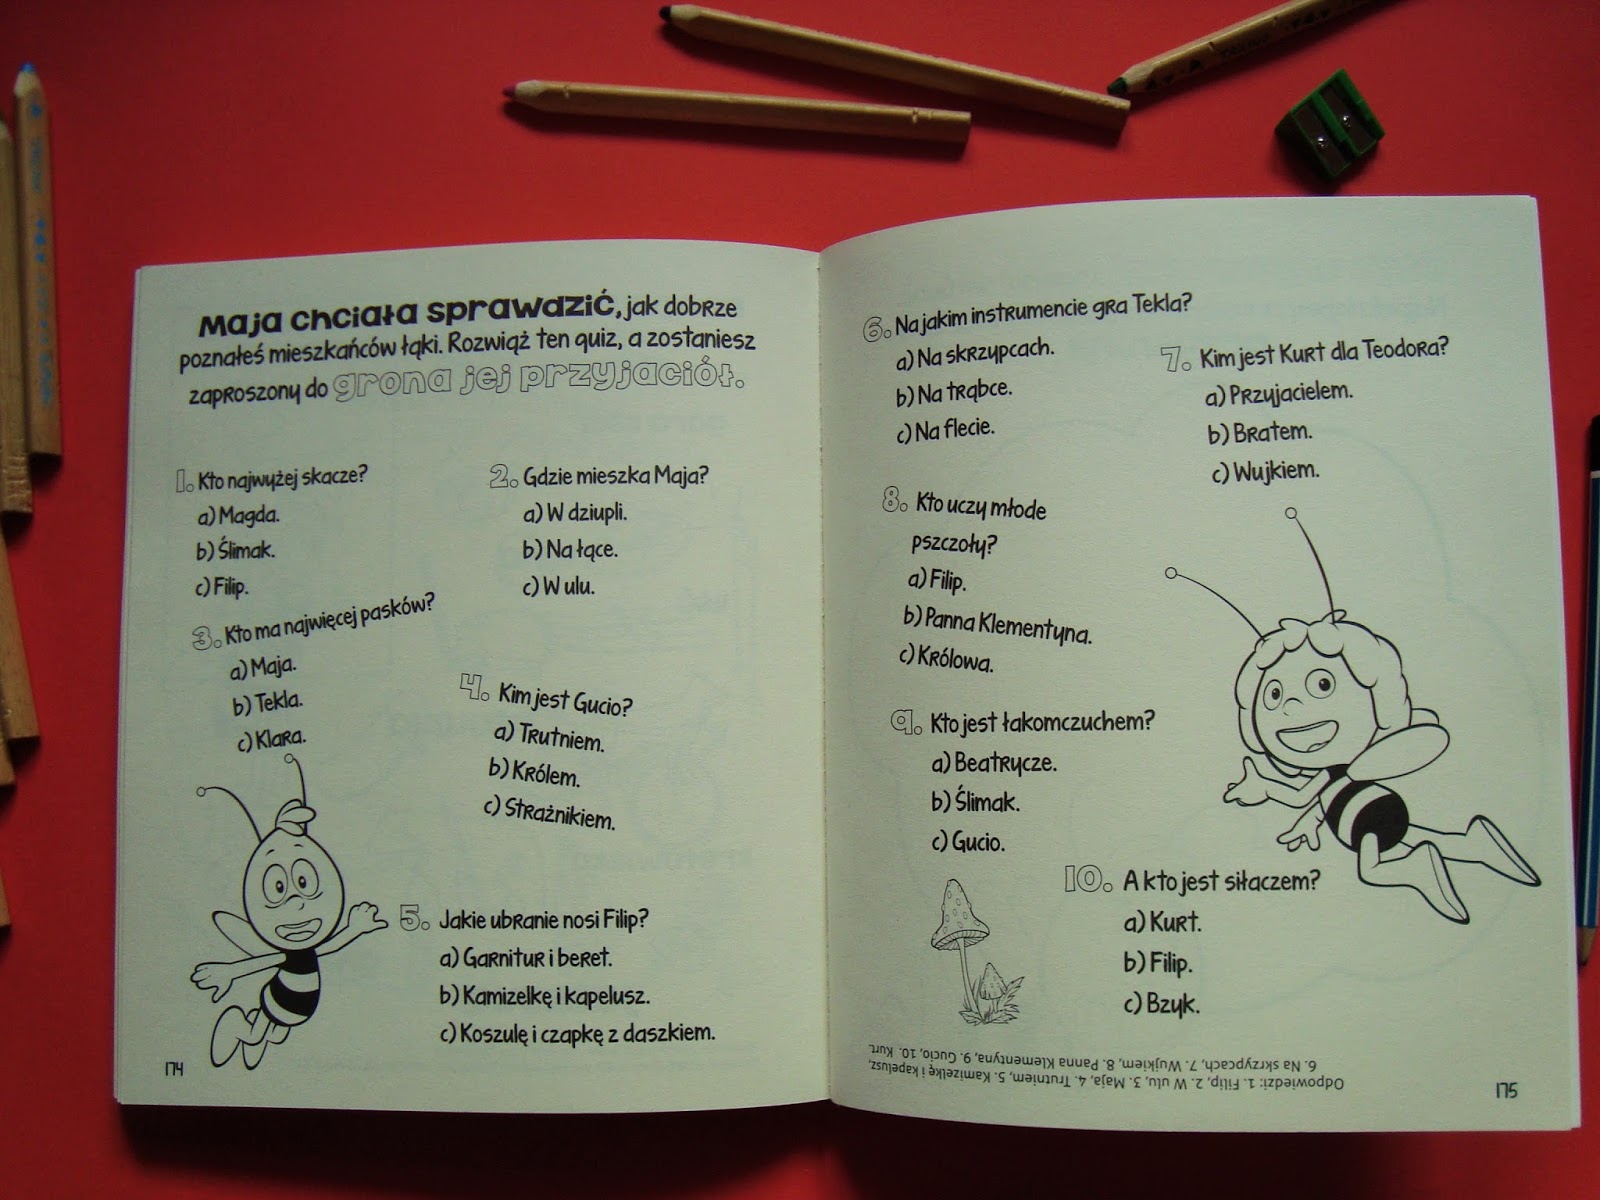 Maja chciała sprawdzić, jak dobrze
poznałeś mieszkańców łąki. Rozwiąż ten quiz, a zostaniesz
zaproszony do grona jej przyjaciół.
1. Kto najwyżej skacze?
a) Magda.
b) Ślimak.
c) Filip.
2. Gdzie mieszka Maja?
a) W dziupli.
b) Na łące.
c) W ulu.
3. Kto ma najwięcej pasków?
a) Maja.
b) Tekla.
c) Klara.
4. Kim jest Gucio?
a) Trutniem.
b) Królem.
c) Strażnikiem.
5. Jakie ubranie nosi Filip?
a) Garnitur i beret.
b) Kamizelkę i kapelusz.
c) Koszulę i czapkę z daszkiem.
174
6. Na jakim instrumencie gra Tekla?
a) Na skrzypcach.
b) Na trąbce.
c) Na flecie.
7. Kim jest Kurt dla Teodora?
a) Przyjacielem.
b) Bratem.
c) Wujkiem.
8. Kto uczy młode
pszczoły?
a) Filip.
b) Panna Klementyna.
c) Królowa.
9. Kto jest łakomczuchem?
a) Beatrycze.
b) Ślimak.
c) Gucio.
10. A kto jest siłaczem?
a) Kurt.
b) Filip.
c) Bzyk.
Odpowiedzi: 1. Filip, 2. W ulu, 3. Maja, 4. Trutniem, 5. Kamizelkę i kapelusz,
6. Na skrzypcach, 7. Wujkiem, 8. Panna Klementyna, 9. Gucio, 10. Kurt.
175